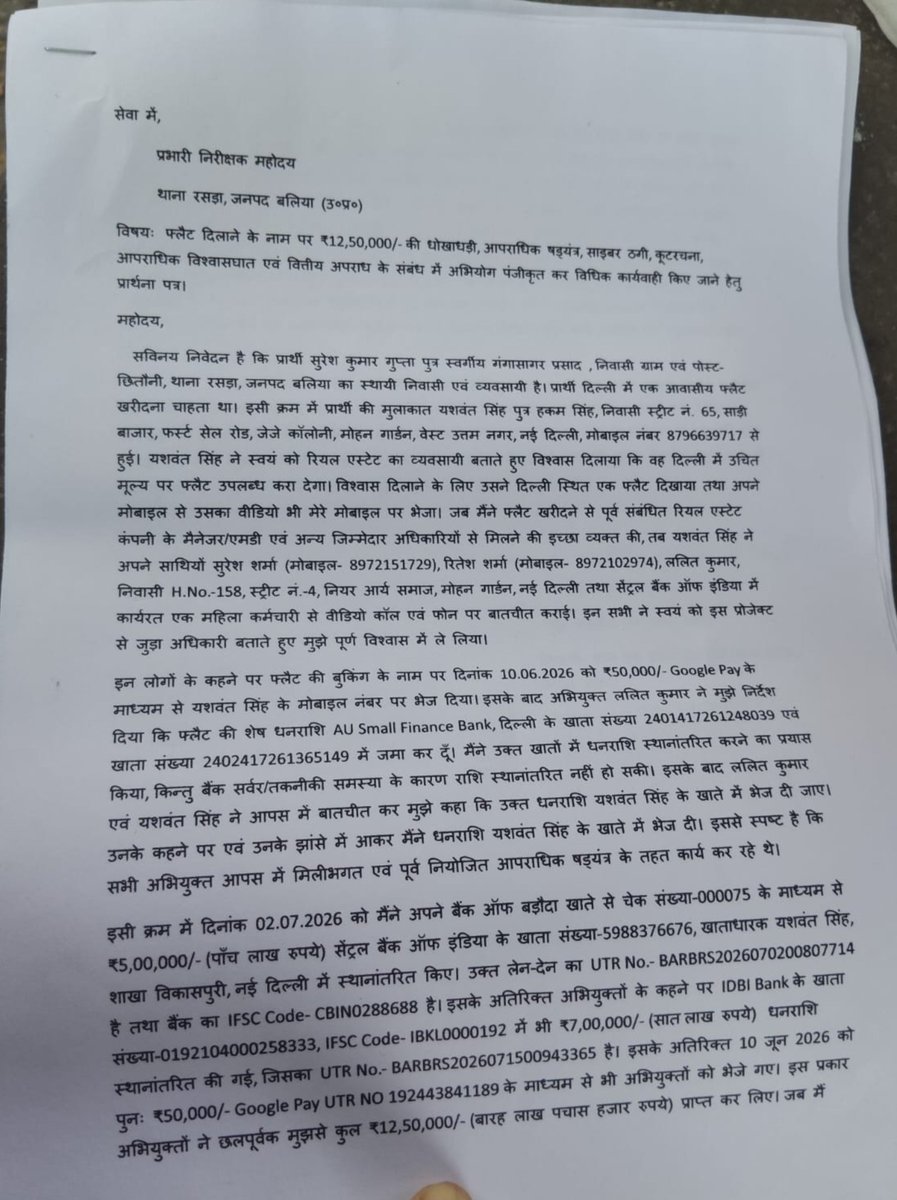 सेवा में,
प्रभारी निरीक्षक महोदय
थाना रसड़ा, जनपद बलिया (उ०प्र०)
विषयः फ्लैट दिलाने के नाम पर ₹12,50,000/- की धोखाधड़ी, आपराधिक षड्यंत्र, साइबर ठगी, कूटरचना,
आपराधिक विश्वासघात एवं वित्तीय अपराध के संबंध में अभियोग पंजीकृत कर विधिक कार्यवाही किए जाने हेतु
प्रार्थना पत्र।
महोदय,
सविनय निवेदन है कि प्रार्थी सुरेश कुमार गुप्ता पुत्र स्वर्गीय गंगासागर प्रसाद ,निवासी ग्राम एवं पोस्ट-
छितौनी, थाना रसड़ा, जनपद बलिया का स्थायी निवासी एवं व्यवसायी है। प्रार्थी दिल्ली में एक आवासीय फ्लैट
खरीदना चाहता था। इसी क्रम में प्रार्थी की मुलाकात यशवंत सिंह पुत्र हकम सिंह, निवासी स्ट्रीट नं. 65, साड़ी
बाजार, फर्स्ट सेल रोड, जेजे कॉलोनी, मोहन गार्डन, वेस्ट उत्तम नगर, नई दिल्ली, मोबाइल नंबर 8796639717 से
हुई। यशवंत सिंह ने स्वयं को रियल एस्टेट का व्यवसायी बताते हुए विश्वास दिलाया कि वह दिल्ली में उचित
मूल्य पर फ्लैट उपलब्ध करा देगा। विश्वास दिलाने के लिए उसने दिल्ली स्थित एक फ्लैट दिखाया तथा अपने
मोबाइल से उसका वीडियो भी मेरे मोबाइल पर भेजा। जब मैंने फ्लैट खरीदने से पूर्व संबंधित रियल एस्टेट
कंपनी के मैनेजर/एमडी एवं अन्य जिम्मेदार अधिकारियों से मिलने की इच्छा व्यक्त की, तब यशवंत सिंह ने
अपने साथियों सुरेश शर्मा (मोबाइल- 8972151729), रितेश शर्मा (मोबाइल- 8972102974), ललित कुमार,
निवासी H.No.-158, स्ट्रीट नं.-4, नियर आर्य समाज, मोहन गार्डन, नई दिल्ली तथा सेंट्रल बैंक ऑफ इंडिया में
कार्यरत एक महिला कर्मचारी से वीडियो कॉल एवं फोन पर बातचीत कराई। इन सभी ने स्वयं को इस प्रोजेक्ट
से जुड़ा अधिकारी बताते हुए मुझे पूर्ण विश्वास में ले लिया।
इन लोगों के कहने पर फ्लैट की बुकिंग के नाम पर दिनांक 10.06.2026 को ₹50,000/- Google Pay के
माध्यम से यशवंत सिंह के मोबाइल नंबर पर भेज दिया। इसके बाद अभियुक्त ललित कुमार ने मुझे निर्देश
दिया कि फ्लैट की शेष धनराशि AU Small Finance Bank, दिल्ली के खाता संख्या 2401417261248039 एवं
खाता संख्या 2402417261365149 में जमा कर दूँ। मैंने उक्त खातों में धनराशि स्थानांतरित करने का प्रयास
किया, किन्तु बैंक सर्वर/तकनीकी समस्या के कारण राशि स्थानांतरित नहीं हो सकी। इसके बाद ललित कुमार
एवं यशवंत सिंह ने आपस में बातचीत कर मुझे कहा कि उक्त धनराशि यशवंत सिंह के खाते में भेज दी जाए।
उनके कहने पर एवं उनके झांसे में आकर मैंने धनराशि यशवंत सिंह के खाते में भेज दी। इससे स्पष्ट है कि
सभी अभियुक्त आपस में मिलीभगत एवं पूर्व नियोजित आपराधिक षड्यंत्र के तहत कार्य कर रहे थे।
इसी क्रम में दिनांक 02.07.2026 को मैंने अपने बैंक ऑफ बड़ौदा खाते से चेक संख्या-000075 के माध्यम से
₹5,00,000/- (पाँच लाख रुपये) सेंट्रल बैंक ऑफ इंडिया के खाता संख्या-5988376676, खाताधारक यशवंत सिंह,
शाखा विकासपुरी, नई दिल्ली में स्थानांतरित किए। उक्त लेन-देन का UTR No.- BARBRS2026070200807714
है तथा बैंक का IFSC Code- CBIN0288688 है। इसके अतिरिक्त अभियुक्तों के कहने पर IDBI Bank के खाता
संख्या-0192104000258333, IFSC Code- IBKL0000192 में भी ₹7,00,000/- (सात लाख रुपये) धनराशि
स्थानांतरित की गई, जिसका UTR No.- BARBRS2026071500943365 है। इसके अतिरिक्त 10 जून 2026 को
पुनः ₹50,000/- Google Pay UTR NO 192443841189 के माध्यम से भी अभियुक्तों को भेजे गए। इस प्रकार
अभियुक्तों ने छलपूर्वक मुझसे कुल ₹12,50,000/- (बारह लाख पचास हजार रुपये) प्राप्त कर लिए। जब मैं